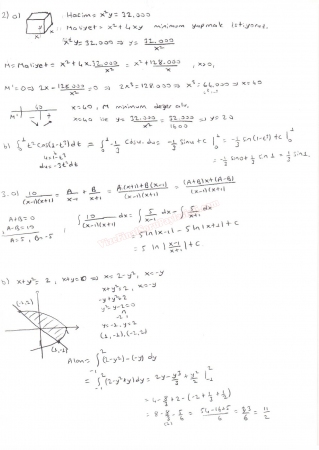 2) a) Hacim = x²y = 32.000
x x y
Maliyet = x² + 4xy minimum yapmak istiyoruz.
x²y = 32.000 ⇒ y = 32.000/x²
M = Maliyet = x² + 4x 32.000/x² = x² + 128.000/x , x>0,
M' = 0 ⇒ 2x - 128.000/x² = 0 ⇒ 2x³ = 128.000 ⇒ x³ = 64.000 ⇒ x = 40
40
M' - +
x = 40, M minimum değer alır.
x = 40 ise y = 32.000/x² = 32.000/1600 ⇒ y = 20
b) ∫ t² cos(1-t³) dt = ∫ -1/3 cos u du = -1/3 sin u + C = -1/3 sin(1-t³) + C
u = 1-t³
du = -3t² dt
= -1/3 sin 0 + 1/3 sin 1 = 1/3 sin 1
3. a) 10/(x-1)(x+1) = A/x-1 + B/x+1 = A(x+1)+B(x-1)/(x-1)(x+1) = (A+B)x+(A-B)/(x-1)(x+1)
A+B=0
A-B=10
A=5, B=-5
∫ 10/(x-1)(x+1) dx = ∫ 5/x-1 dx - ∫ 5/x+1 dx
= 5 ln|x-1| - 5 ln|x+1| + C
= 5 ln |x-1/x+1| + C
b) x+y² = 2, x+y=0 ⇒ x = 2-y², x=-y
x+y²=2, x=-y
-y+y²=2
y²-y-2=0
y=-1, y=2
(1,-1), (-2,2)
(-2,2)
(1,-1)
Alan = ∫ (2-y²) - (-y) dy
= ∫ (2-y²+y) dy = 2y - y³/3 + y²/2
= 4 - 8/3 + 2 - (-2 + 1/3 + 1/2)